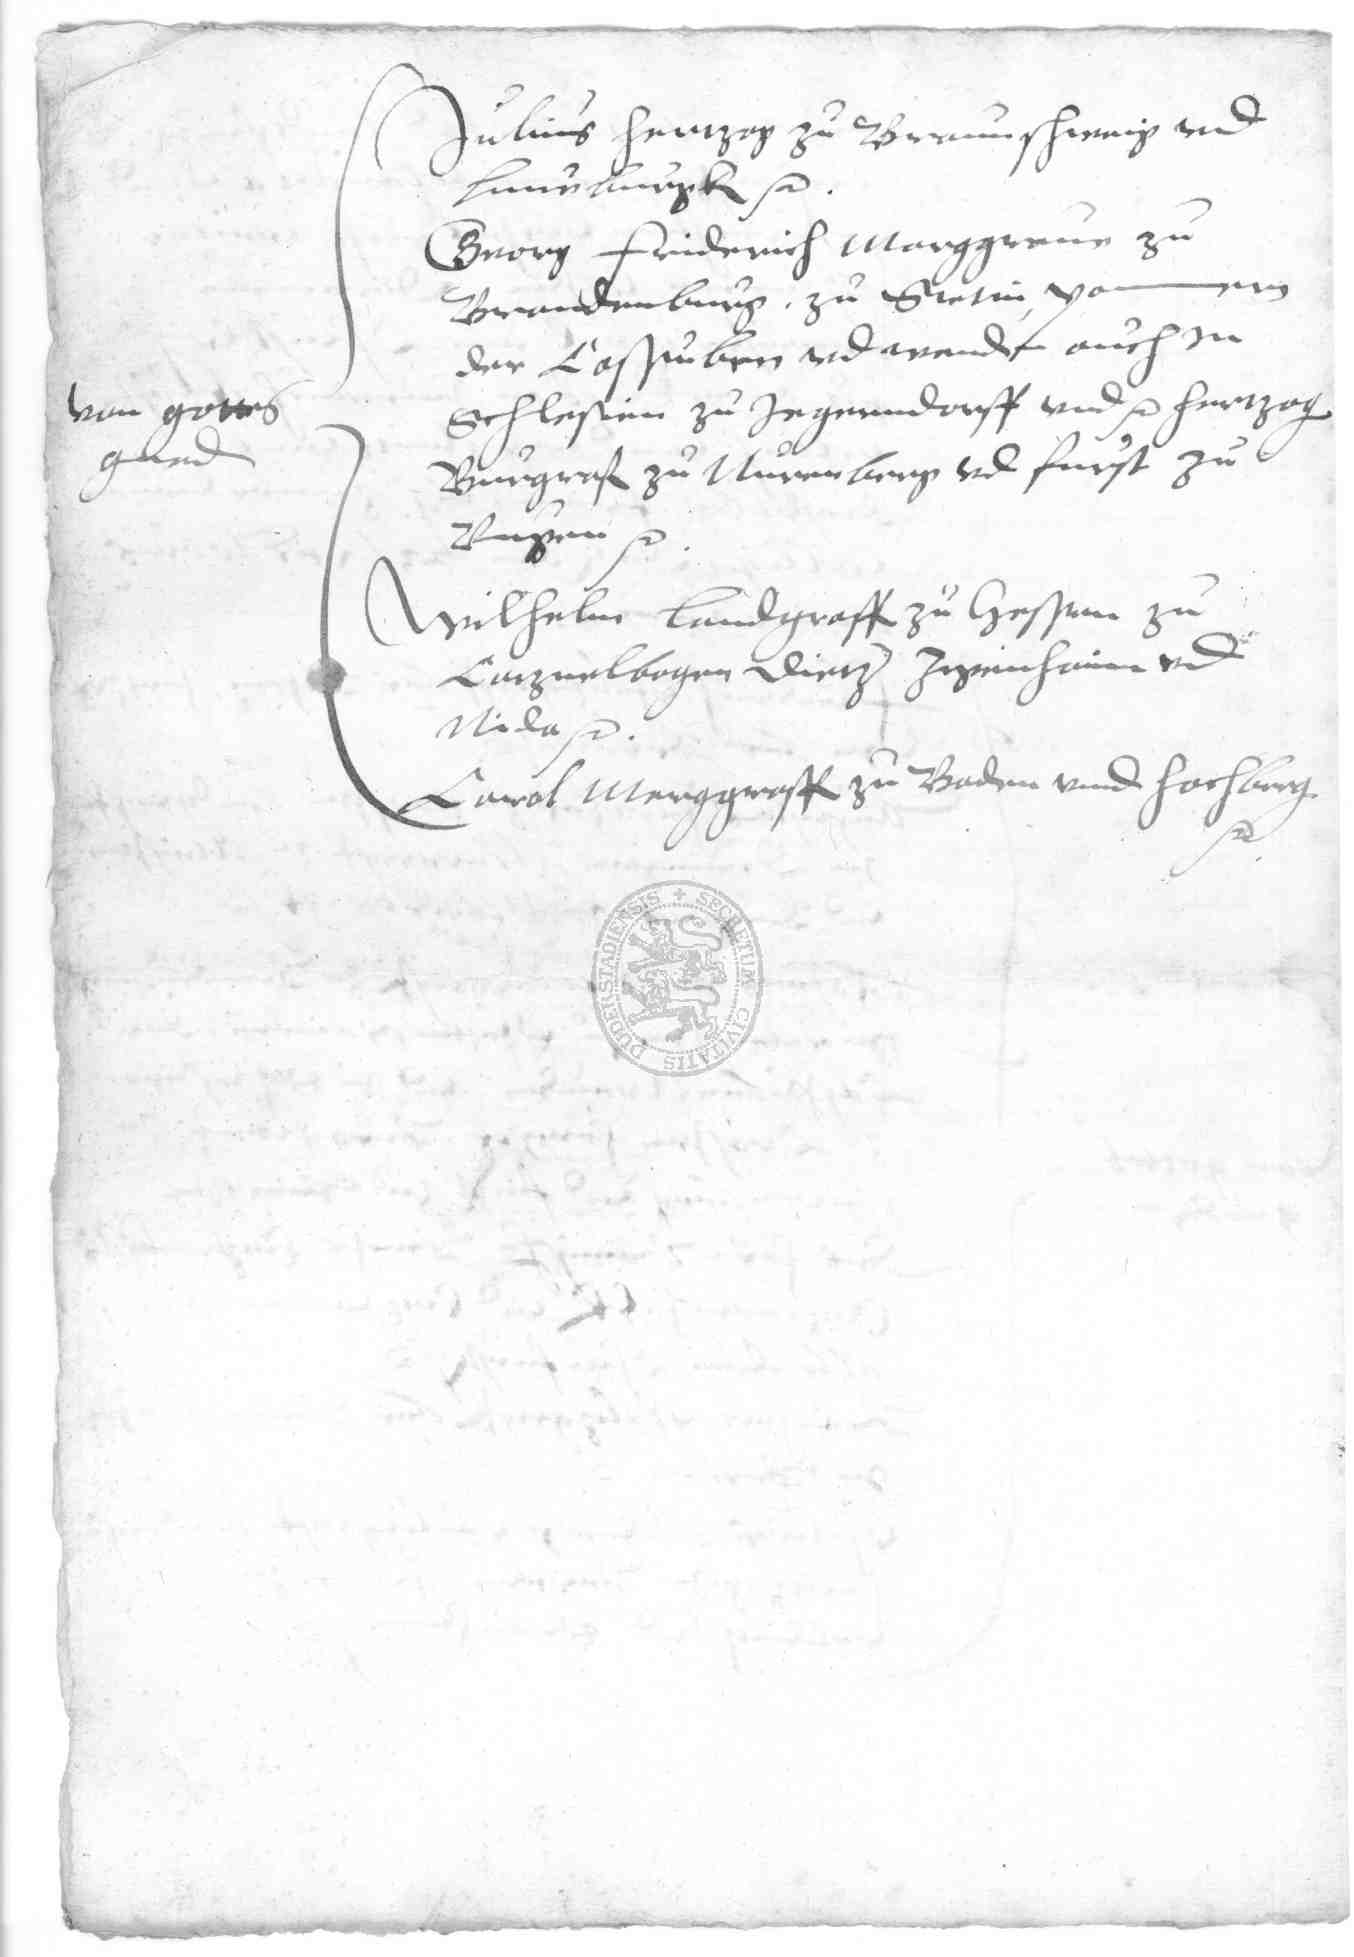 Julius Hertzog zu Braunschweig vnd
Luneburgk etc.
Georg Friderich Marggraue zu
Brandenburg, zu Stetin, Pommern
der Cassuben vnd wenden auch In
von gottes
gnad
Schlesien zu Jegerndorff vnd etc Hertzog
Burgraf zu Nurenberg vnd furst zu
Rugen etc.
Wilhelm Landgraff zu Hessen zu
Catznelbogen Dietz Zigenhaim vnd
Nida etc.
Carol Marggraff zu Baden vnnd Hochberg
etc.
SECRETUM CIVITATIS DUDERSTADIENSIS